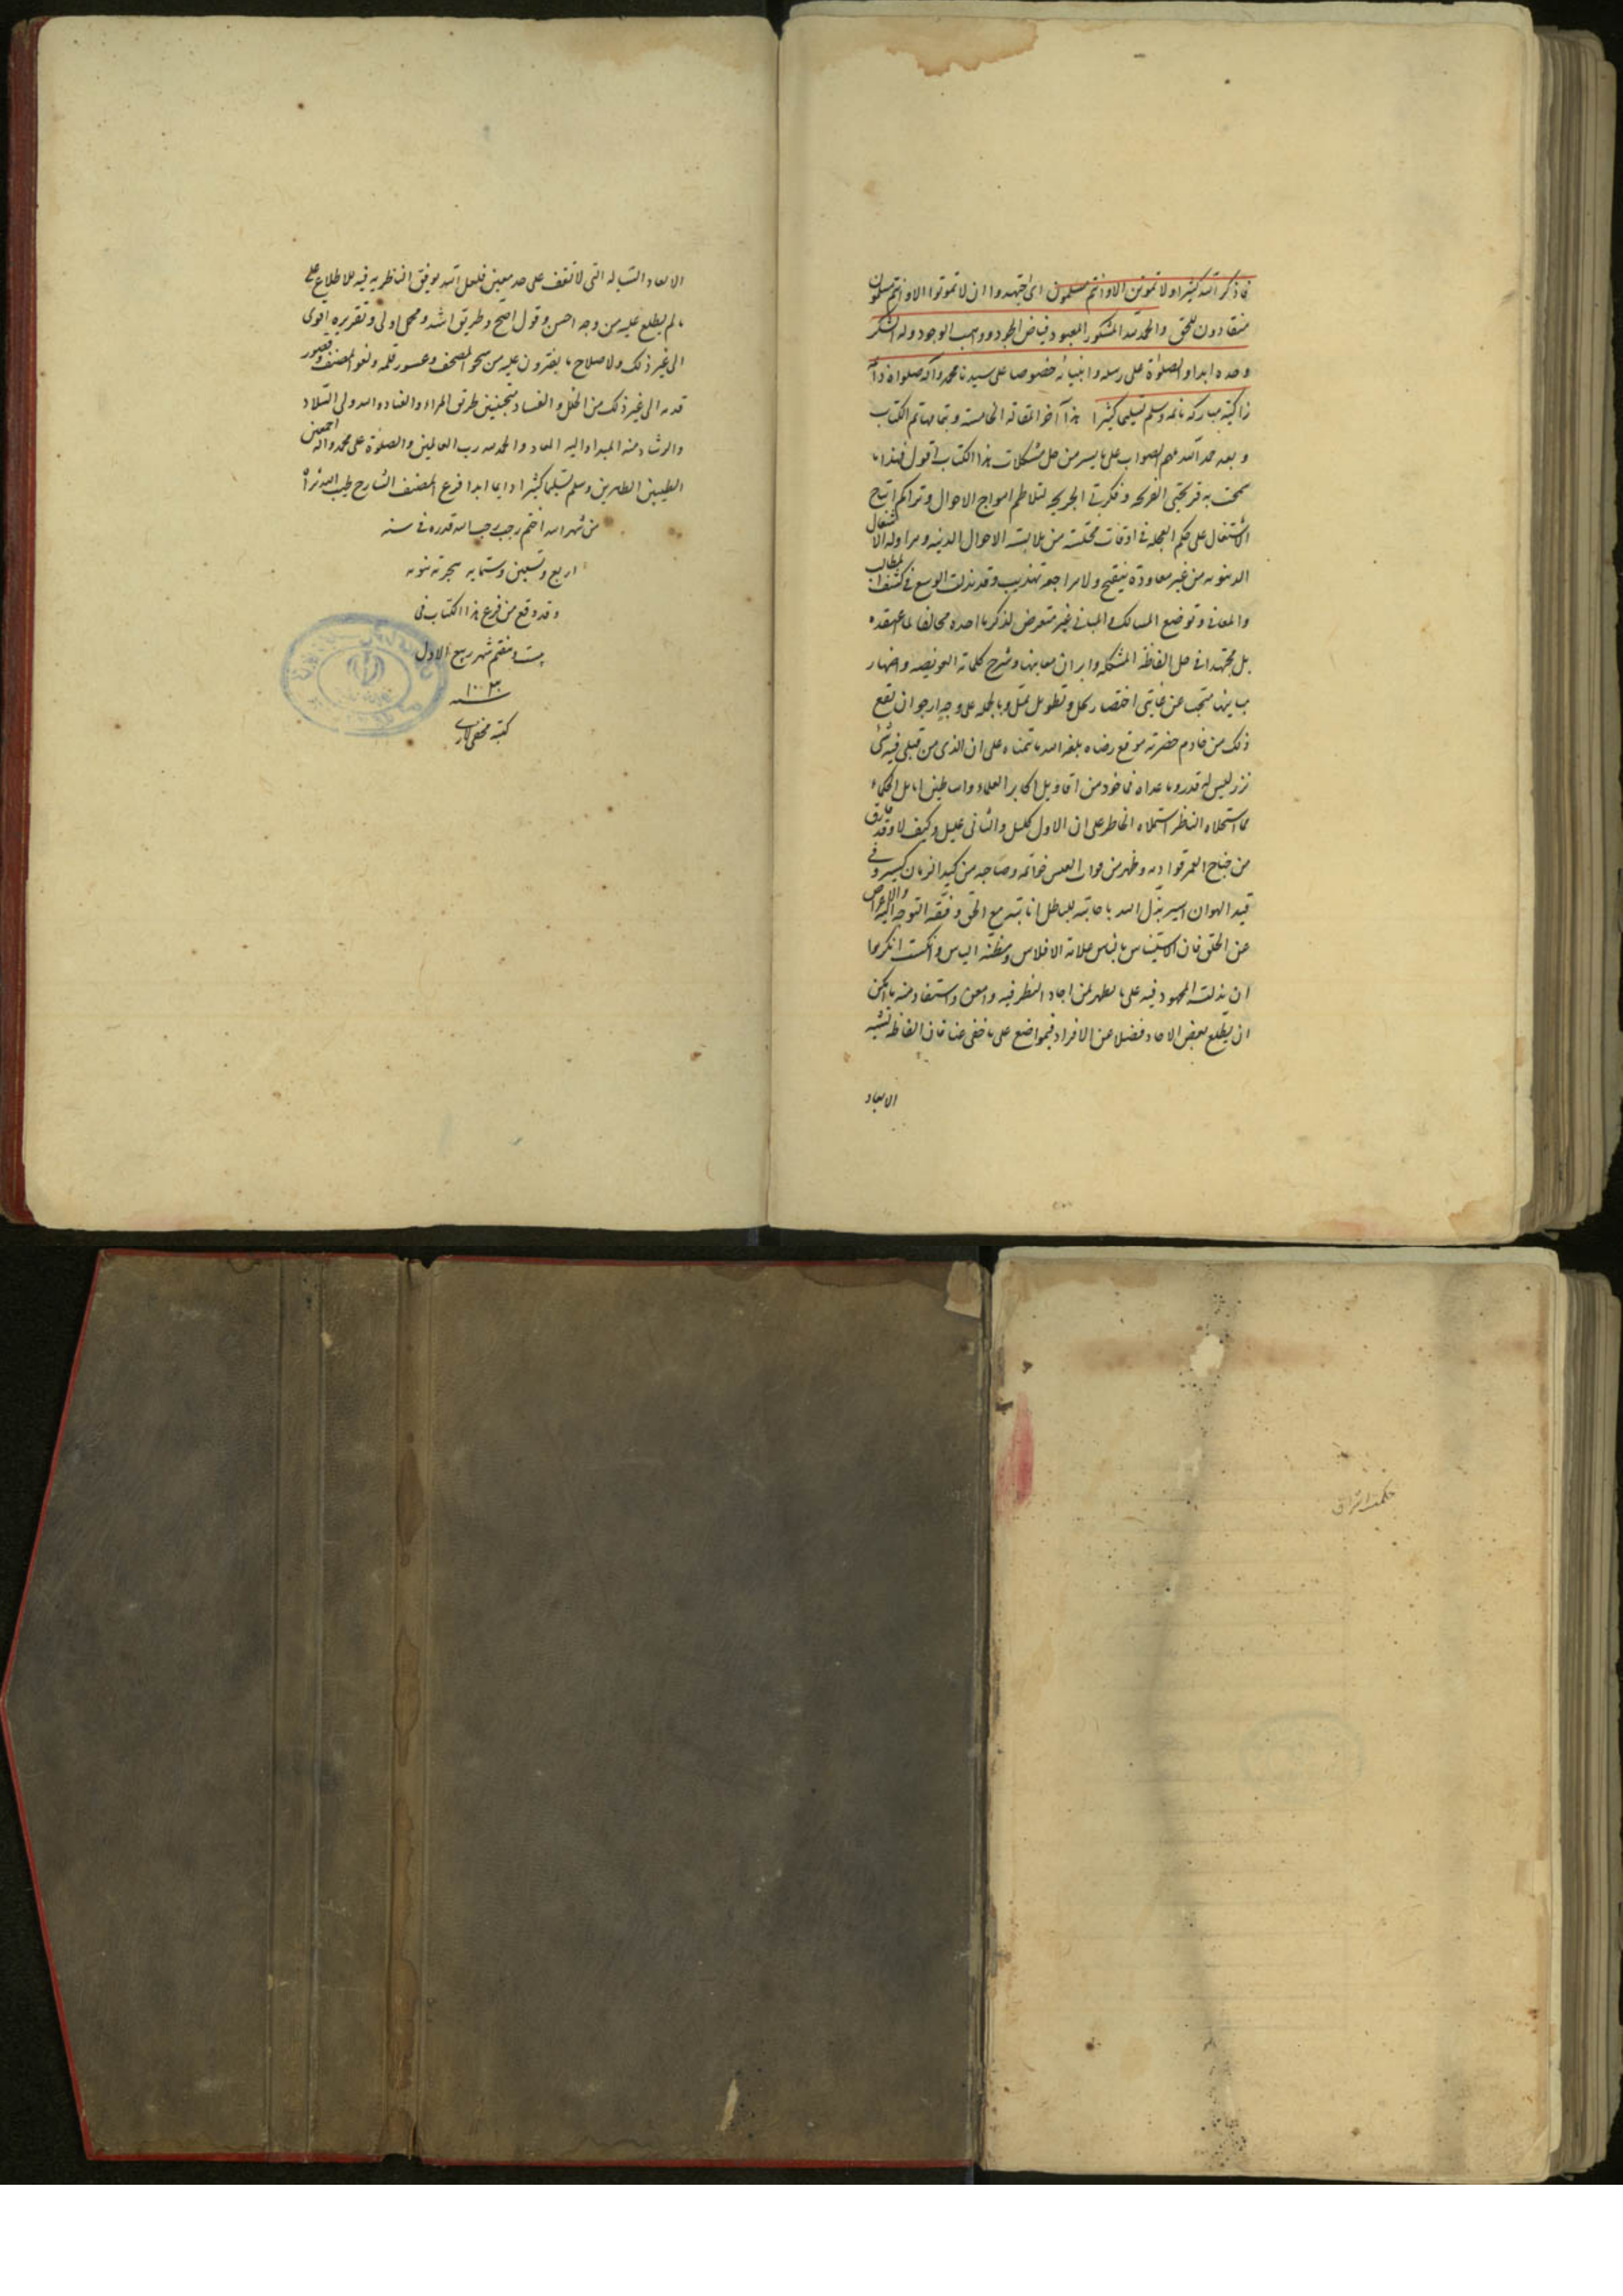 فاذكر الله كثيرا ولا تموتن الا وانتم مسلمون اى اجتهدوا ان لا تموتوا الا وانتم مسلمون
منقادون للحق والحمد لله المشكور المعبود فياض الجود وواهب الوجود وله الشكر
وحده ابدا والصلوة على رسله وانبيائه خصوصا على سيدنا محمد وآله صلواة دائمة
زاكية مباركة نامية وسلم تسليما كثيرا هذا آخر المقالة الخامسة وبتمامها تم الكتاب
وبعد حمد الله ملهم الصواب على ما يسر من حل مشكلات هذا الكتاب اقول فهذا ما
سمحت به قريحتى القريحة وفكرتى الجريحة لتلاطم امواج الاحوال وتراكم افواج
الاشتغال على حكم العجلة فى اوقات مختلسة من ملابسة الاحوال الدينية ومزاولة الاشغال
الدنيوية من غير معاودة تنقيح ولا مراجعة تهذيب وقد بذلت الوسع فى كشف المطالب
والمعانى وتوضيح المسالك والمبانى غير متعرض لذكر ما اجده مخالفا لما اعتقده
بل مجتهدا فى حل الفاظه المشكلة وابراز معانيها وشرح كلماته العويصة واظهار
مباينها متجنب عن غايتى اختصار مخل وتطويل ممل وبالجملة على وجه ارجو ان يقع
ذلك من خادم حضرته موقع رضاه بلغه الله ما تمناه على ان الذى من قبلى فيه شئ
نزر ليس له قدر وما عداه فماخوذ من اقاويل اكابر العلماء واساطين اماثل الحكماء
مما استحلاه الناظر استملاه الخاطر على ان الاول كليل والثانى عليل وكيف لا وقد
من جناح العمر قوادمه وظهر من العيش خواتمه وصاحبه من كيد الزمان كسير وفى
قيد الهوان اسير بدل الله باجابته للباطل انابته مع الحق وفقه التوجه اليه والاعراض
عن الخلق فان الاستيناس بالناس علامة الافلاس ومظنة الياس ولست انكر مما
ان بذلت المجهود فيه على ما يظهر لمن اجاد النظر فيه وامعن واستفاد منه ما امكن
ان يطلع بعض الاحاد فضلا عن الافراد فى مواضع على ما خفى عنا فان الفاظه تشبه
الابعاد
الابعاد السيالة التى لا تقف على حد معين فلعل الله يوفق الناظرين فيه للاطلاع على
ما لم يطلع عليه من وجه احسن وقول اصح وطريق اشد ومحمل اولى وتقريره اقوى
الى غير ذلك ولاصلاح ما يعثرون عليه من سهو المصحف وعسور قلمه ولغو المصنف وقصور
قدمه الى غير ذلك من الخلل والفساد متجنبين طرق المراء والعناد والله ولى السداد
والرشاد منه المبدا واليه المعاد والحمد لله رب العالمين والصلوة على محمد وآله اجمعين
الطيبين الطاهرين وسلم تسليما كثيرا دايما ابدا فرغ المصنف الشارح طيب الله ثراه
من شهر الله الاصم رجب رجب الله قدره فى سنه
اربع وتسعين وستمايه هجرية نبويه
وقد وقع من فرغ هذا الكتاب فى
بيست وهفتم شهر ربيع الاول
سنه ١٠٠٣
كتبه
حكمت اشراق